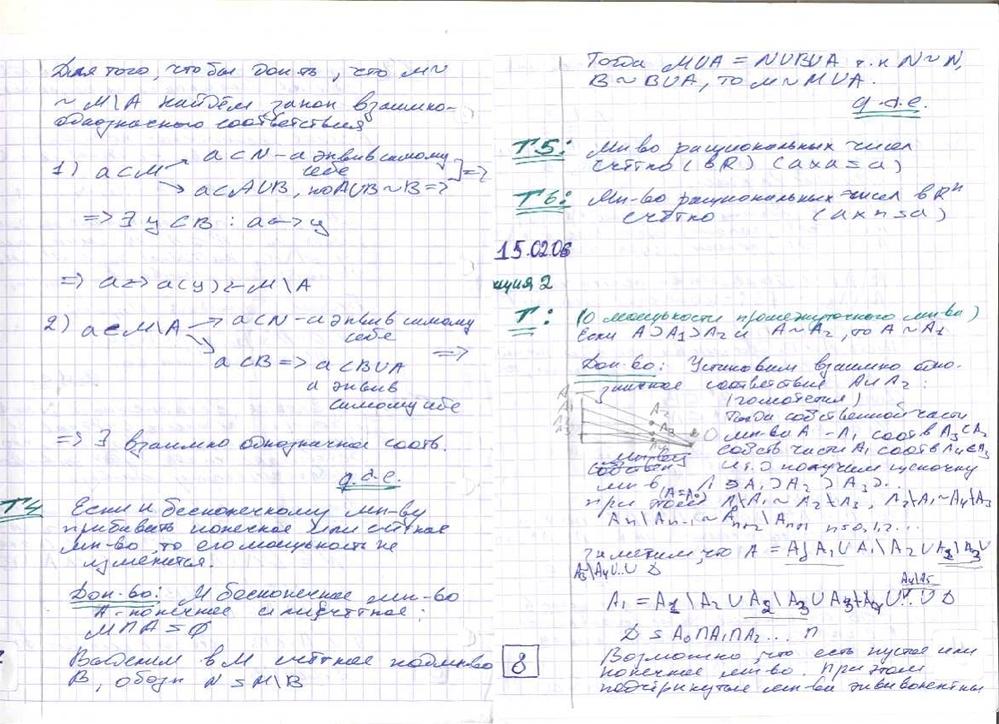 Для того, чтобы док-ть, что M ~
~ M\A найдём закон взаимно-
однозначного соответствия
1) a⊂M → a⊂N – a эквив самому
себе
→ a⊂A∪B, но A∪B ~ B =>
=> ∃ y⊂B : a <-> y
=> a <-> a(y) ⊂ M\A
2) a⊂M\A → a⊂N – a эквив самому
себе =>
a⊂B => a⊂B∪A
a эквив
самому себе
=> ∃ взаимно однозначное соотв.
q.d.e.
T4 Если к бесконечному мн-ву
прибавить конечное или счётное
мн-во, то его мощность не
изменится.
Док-во: M бесконечное мн-во
A – конечное или счётное:
M∩A = ∅
Выделим в M счётное подмн-во
B, обозн N = M\B
Тогда M∪A = N∪B∪A т.к N~N,
B ~ B∪A, то M ~ M∪A.
q.d.e.
T5: Мн-во рациональных чисел
счётно (в R) (a×a=a)
T6: Мн-во рациональных чисел в Rⁿ
счётно (a×n=a)
15.02.06
кция 2
T: (О мощности промежуточного мн-ва)
Если A⊃A₁⊃A₂ и A~A₂, то A~A₁
Док-во: Установим взаимно одно-
значное соответствие A и A₂:
(гомотетия)
Тогда собственной части
мн-ва A – A₁ соотв A₃⊂A₂
собств части A₁ соотв A₄⊂A₃
и т.д получим цепочку
мн-в A⊃A₁⊃A₂⊃A₃⊃..
(A=A₀)
при этом A\A₁ ~ A₂\A₃, A₂\A₃ ~ A₄\A₅
Aₙ\Aₙ₊₁ ~ Aₙ₊₂\Aₙ₊₃ n=0,1,2...
Заметим, что A = A\A₁∪A₁\A₂∪A₂\A₃∪
A₃\A₄∪..∪D
A₄\A₅
A₁ = A₁\A₂∪A₂\A₃∪A₃\A₄∪..∪D
D = A₀∩A₁∩A₂...∩
Возможно, что есть пустое или
конечное мн-во. При этом
подчёркнутые мн-ва эквивалентны
8